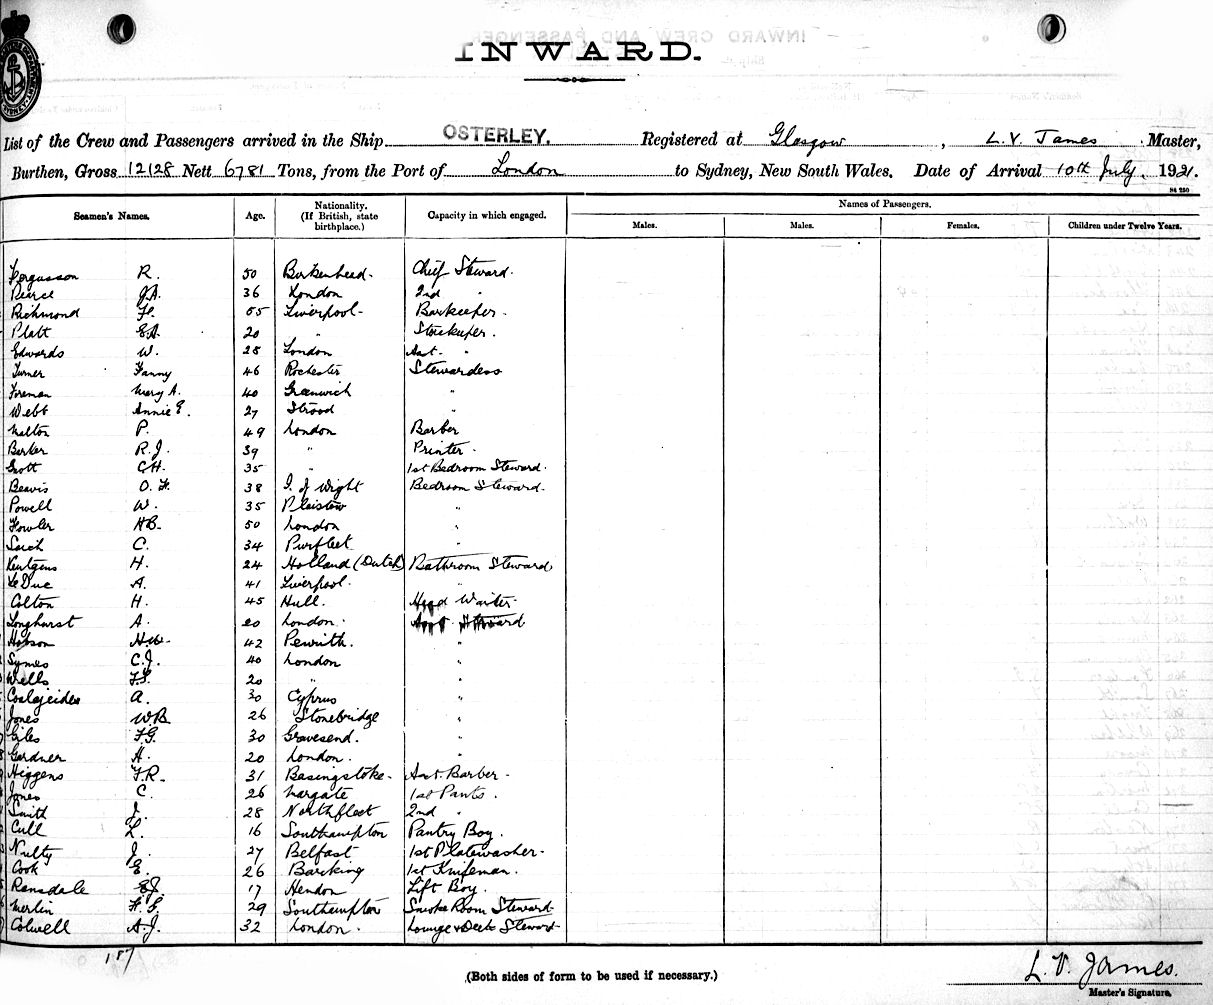 INWARD.
List of the Crew and Passengers arrived in the Ship OSTERLEY. Registered at Glasgow, L.V. James. Master,
Burthen, Gross 12128 Nett 6781 Tons, from the Port of London to Sydney, New South Wales. Date of Arrival 10th July, 1921.
Seamen's Names. Age. Nationality. (If British, state birthplace.) Capacity in which engaged. Names of Passengers.
Males. Males. Females. Children under Twelve Years.
Fergusson R. 50 Birkenhead. Chief Steward.
Pearce J.A. 36 London 2nd "
Richmond 55 Liverpool Barkeeper.
Platt 20 " Storekeeper.
Edwards W. 28 London Asst. "
Turner Fanny 46 Rochester Stewardess
Foreman Mary A. 40 Greenwich "
Webb Annie E. 27 Strood "
Walton P. 49 London Barber
Barker R.J. 39 " Printer.
Grott C.H. 35 " 1st Bedroom Steward.
Beavis O.F. 38 I. of Wight Bedroom Steward.
Powell W. 35 Plaistow "
Fowler H.B. 50 London "
C. 34 Purfleet "
Keutgens H. 24 Holland (Dutch) Bathroom Steward
Le Duc A. 41 Liverpool. "
Colton H. 45 Hull. Head Waiter.
Longhurst A. 20 London. Asst Steward
Hobson H.W. 42 Penrith. "
Symes C.J. 40 London "
Wells F.S. 20 " "
A. 30 Cyprus "
Jones W.B. 26 Stonebridge "
Giles F.G. 30 Gravesend. "
Gardner H. 20 London. "
Higgens F.R. 31 Basingstoke. Asst. Barber.
Jones C. 26 Margate 1st Pants.
Smith J. 28 Northfleet 2nd "
Cull L. 16 Southampton Pantry Boy.
Nulty J. 27 Belfast 1st Platewasher.
Cook E. 26 Barking 1st Knifeman.
Ransdale E.J. 17 Hendon Lift Boy.
Merlin F.G. 29 Southampton Smoke Room Steward
Colwell A.J. 32 London. Lounge & Deck Steward
187
(Both sides of form to be used if necessary.)
L.V. James.
Master's Signature.